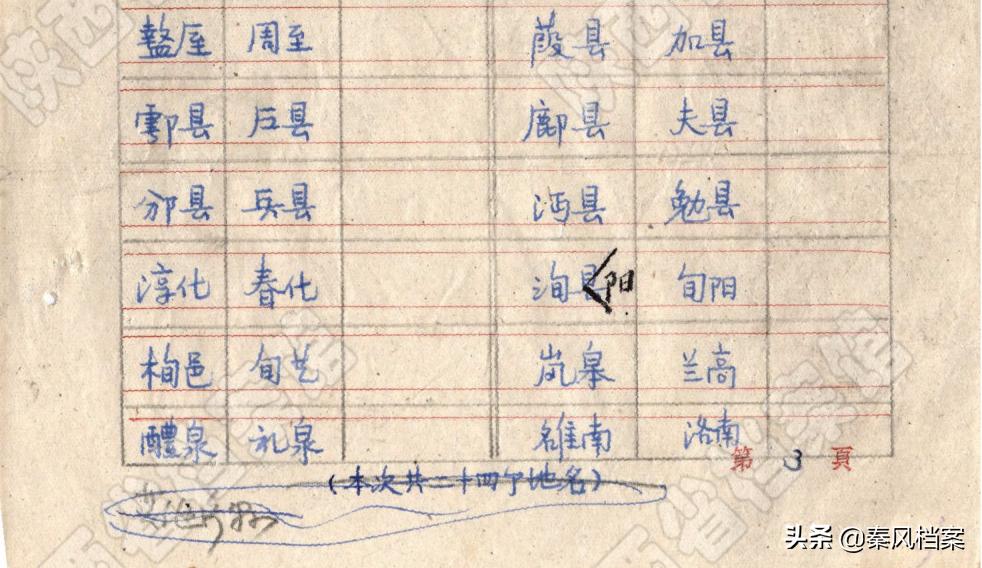 盩厔 周至 葭县 加县
鄠县 户县 鄜县 夫县
邠县 兵县 沔县 勉县
淳化 春化 洵县阳 旬阳
栒邑 旬艺 岚皋 兰高
醴泉 礼泉 雒南 洛南
第 3 頁
(本次共二十四个地名)
头条 @秦风档案